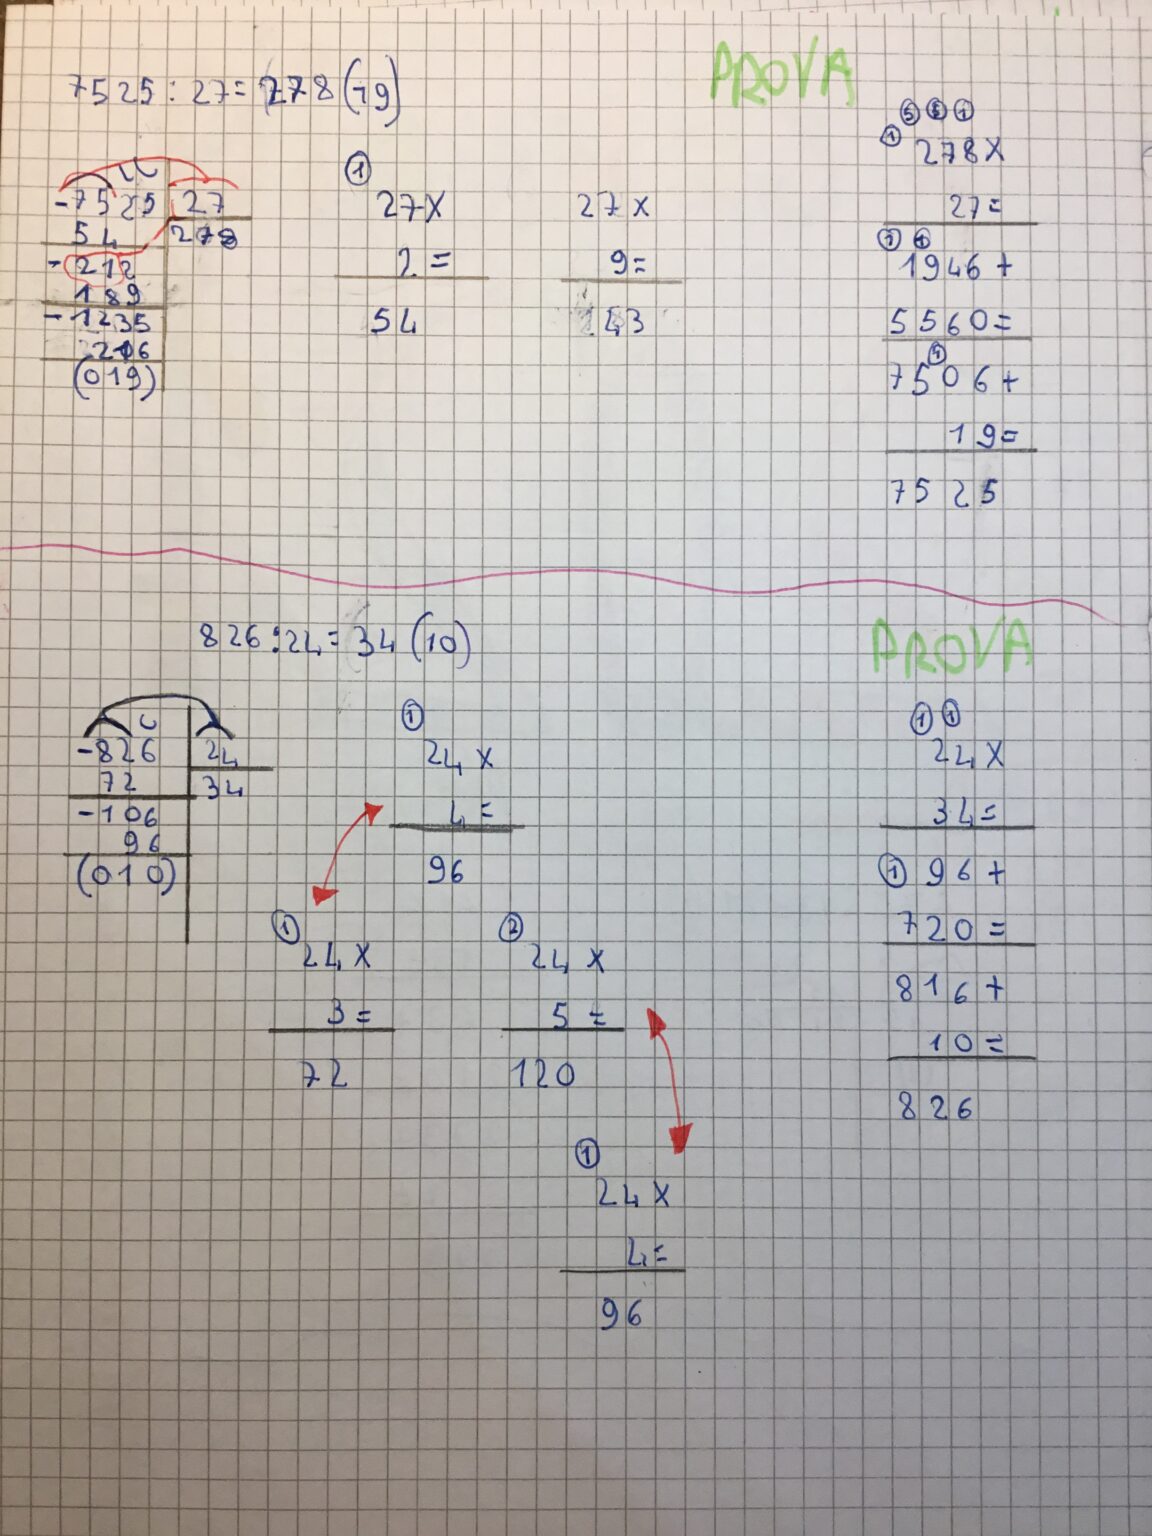 PROVA
7525 : 27 = 278 (19)
-7525 27
54 278
-212
189
-1235
216
(019)
1
27x
2=
54
27x
9=
5 5 1
1
278x
27=
1 1
1946+
5560=
1
7506+
19=
7525
826:24= 34 (10)
PROVA
-826 24
72 34
-106
96
(010)
1
24x
4=
96
1
24x
3=
72
2
24x
5=
120
1
24x
4=
96
1 1
24x
34=
1 96+
720=
816+
10=
826